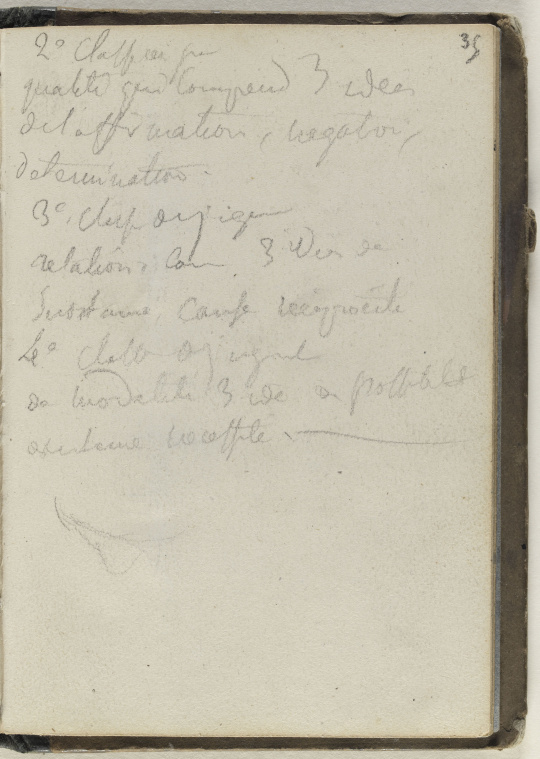 35
2º Classe
qualité qui comprend 3 idees
de l'affirmation, negation,
determination.
3º. classe
relation. 3 idees de
substance, cause reciprocité
4º classe
de modalité 3 ide de possibilité
existence necessité.